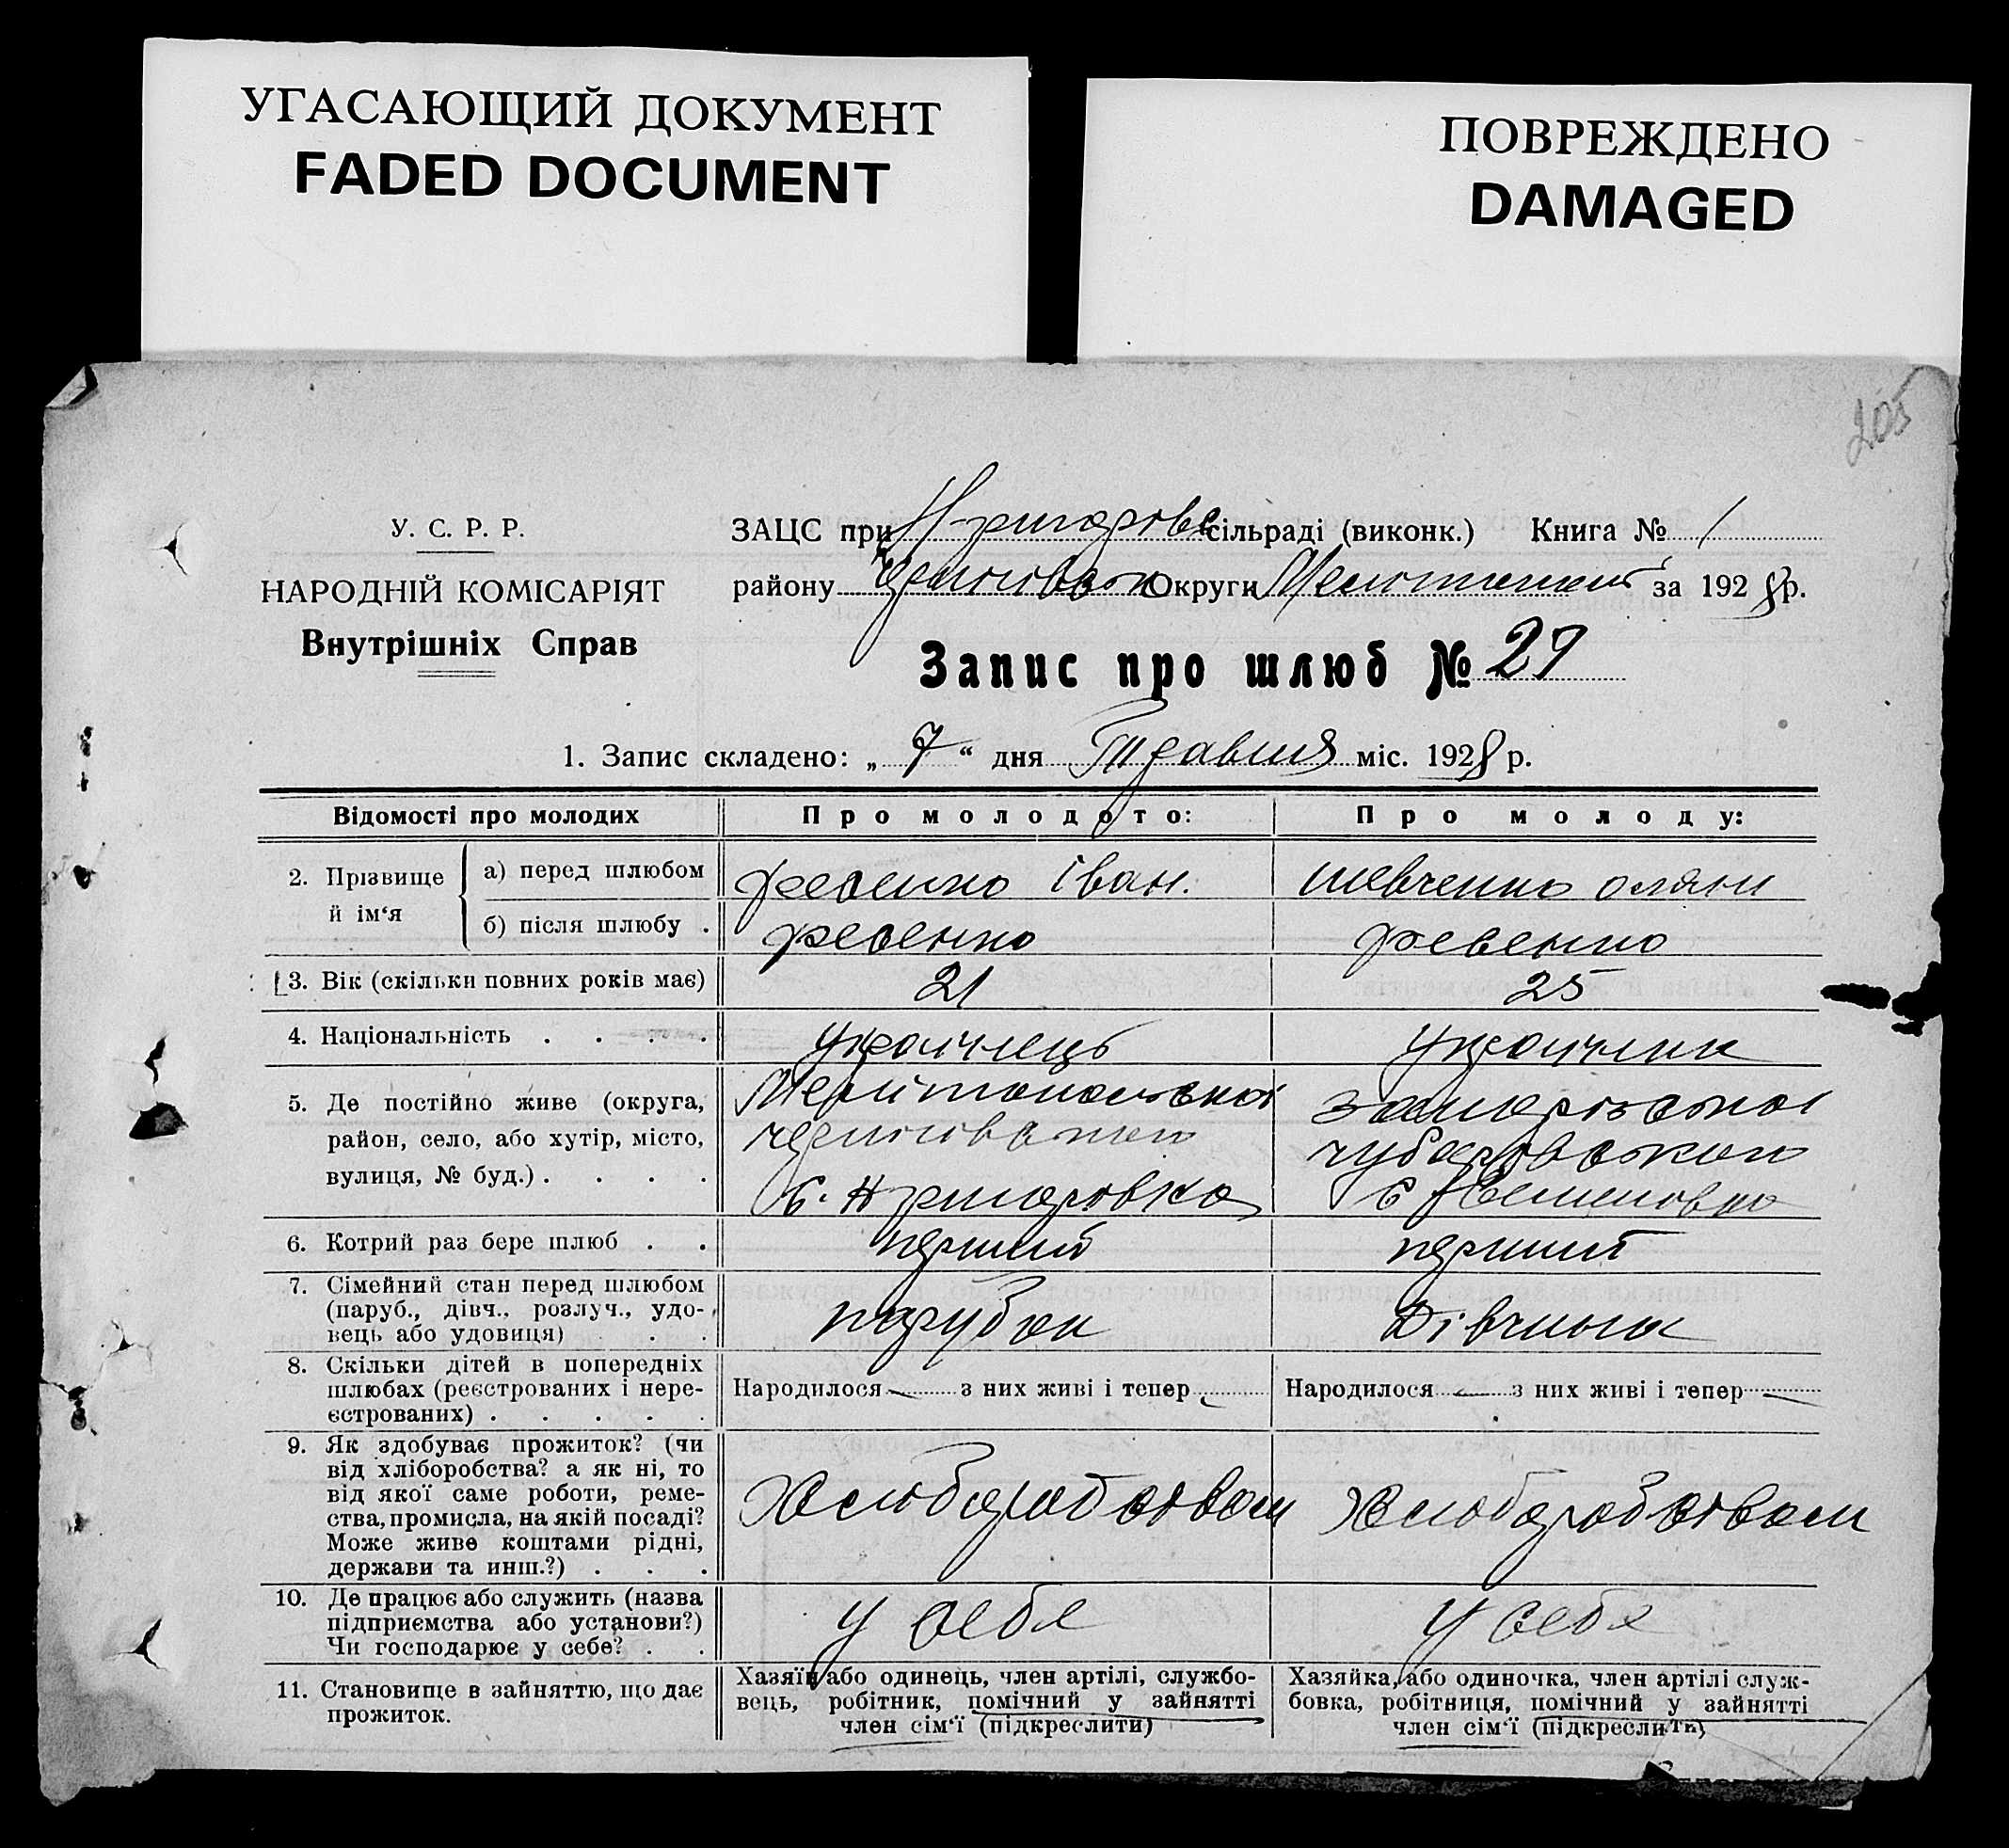 УГАСАЮЩИЙ ДОКУМЕНТ
FADED DOCUMENT
ПОВРЕЖДЕНО
DAMAGED
205
У. С. Р. Р.
НАРОДНІЙ КОМІСАРІЯТ
Внутрішніх Справ
ЗАЦС при сільраді (виконк.) Книга № 1
району Округи за 1928 р.
Запис про шлюб № 29
1. Запис складено: „ 7 “ дня Травня міс. 1928 р.
Відомості про молодих
Про молодого:
Про молоду:
2. Прізвище й ім‘я
а) перед шлюбом
ревенко іван.
шевченко оляни
б) після шлюбу .
ревенко
ревенко
3. Вік (скільки повних років має)
21
25
4. Національність . . . .
українець
українка
5. Де постійно живе (округа,
район, село, або хутір, місто,
вулиця, № буд.) . . . .
Мелітопольської
запорізької
с.
с
6. Котрий раз бере шлюб . .
перший
перший
7. Сімейний стан перед шлюбом
(паруб., дівч., розлуч., удо-
вець або удовиця) . . .
парубок
Дівчина
8. Скільки дітей в попередніх
шлюбах (реєстрованих і нере-
єстрованих) . . . . .
Народилося — з них живі і тепер —
Народилося — з них живі і тепер —
9. Як здобуває прожиток? (чи
від хліборобства? а як ні, то
від якої саме роботи, реме-
ства, промисла, на якій посаді?
Може живе коштами рідні,
держави та инш.?) . . .
Хлюборобством
Хлюборобством
10. Де працює або служить (назва
підприємства або установи?)
Чи господарює у себе? . .
у себя
у себя
11. Становище в зайняттю, що дає
прожиток.
Хазяїн або одинець, член артілі, службо-
вець, робітник, помічний у зайнятті
член сім‘ї (підкреслити)
Хазяйка, або одиночка, член артілі служ-
бовка, робітниця, помічний у зайнятті
член сім‘ї (підкреслити)